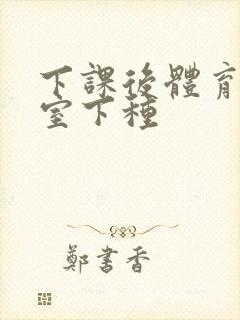 下課後體育
室下種
鄭書香